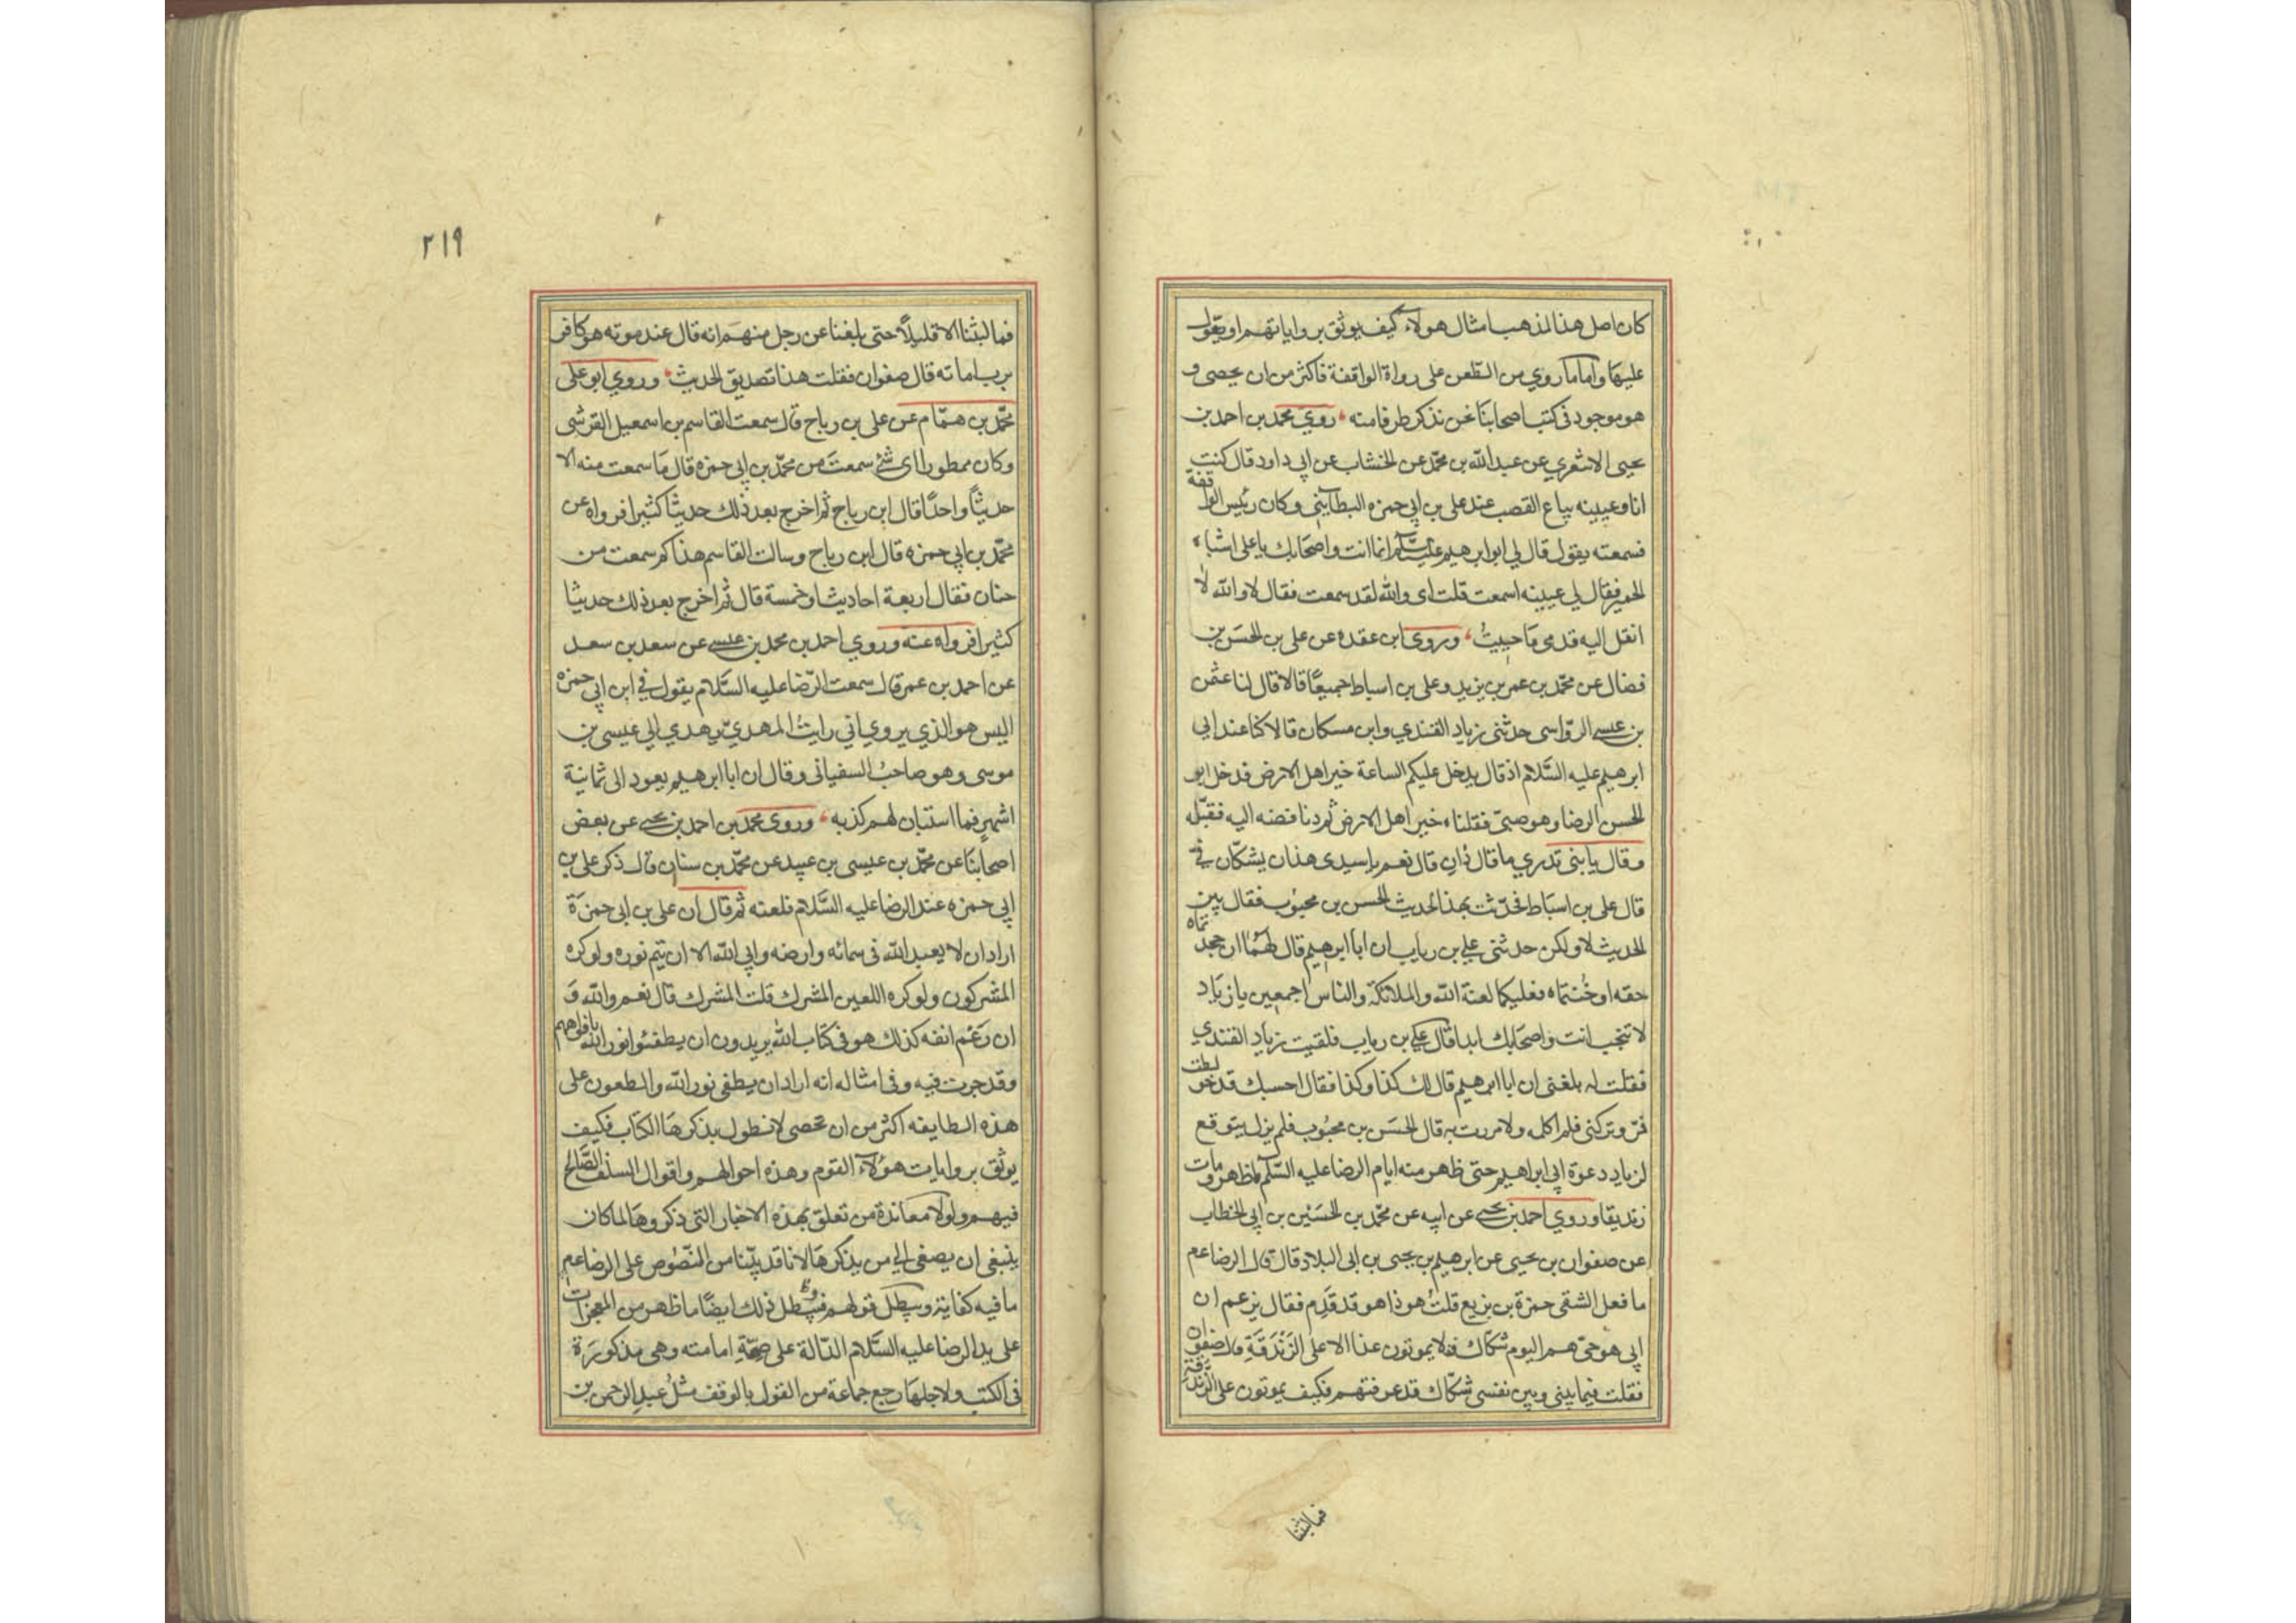 كان اصل هذا المذهب امثال هولاء كيف يوثق برواياتهم او يعول
عليها واما ما روي من الطعن على رواة الواقفة فاكثر من ان يحصى و
هو موجود فى كتب اصحابنا نحن نذكر طرفا منه روي محمد بن احمد بن
يحيى الاشعري عن عبد الله بن محمد عن الخشاب عن ابى داود قال كنت
انا وعيينه بياع القصب عند على بن ابي حمزه البطاينى وكان رئيس الواقفة
فسمعته يقول قال لي ابو ابرهيم عليه السلام انما انت واصحابك يا على اشباه
الحمير فقال لي عيينه اسمعت قلت اى والله لقد سمعت فقال لا والله لا
انقل اليه قدمى ما حييت وروى ابن عقده عن على بن الحسن بن
فضال عن محمد بن عمر بن يزيد وعلى بن اسباط جميعا قالا قال لنا عثمن
بن عيسى الرواسى حدثنى زياد القندي وابن مسكان قالا كنا عند ابى
ابرهيم عليه السلام اذ قال يدخل عليكم الساعة خير اهل الارض فدخل ابو
الحسن الرضا وهو صبى فقلنا خير اهل الارض ثم دنا فضمه اليه فقبله
وقال يا بنى تدري ما قال ذان قال نعم يا سيدى هذان يشكان فى
قال على بن اسباط فحدثت بهذا الحديث الحسن بن محبوب فقال بتر
الحديث لا ولكن حدثنى علي بن رياب ان ابا ابرهيم قال لهما ان جحدتماه
حقه او خنتماه فعليكما لعنة الله والملائكة والناس اجمعين يا زياد
لا تنجب انت واصحابك ابدا قال علي بن رياب فلقيت زياد القندي
فقلت له بلغنى ان ابا ابرهيم قال لك كذا وكذا فقال احسبك قد خولطت
فمر وتركنى فلم اكلمه ولا مررت به قال الحسن بن محبوب فلم يزل يتوقع
لزياد دعوة ابي ابراهيم حتى ظهر منه ايام الرضا عليه السلم ما ظهر ومات
زنديقا وروي احمد بن يحيى عن ابيه عن محمد بن الحسين بن ابي الخطاب
عن صفوان بن يحيى عن ابرهيم بن يحيى بن ابى البلاد قال قال الرضا عم
ما فعل الشقى حمزة بن بزيع قلت هوذا هو قد قدم فقال يزعم ان
ابى هو حى هم اليوم شكاك فلا يموتون غدا الا على الزندقة قال صفوان
فقلت فيما بينى وبين نفسى شكاك قد عرفتهم فكيف يموتون على الزندقة
فما لبثنا
٢١٩
فما لبثنا الا قليلا حتى بلغنا عن رجل منهم انه قال عند موته هو كافر
برب اماته قال صفوان فقلت هذا تصديق الحديث وروي ابو على
محمد بن همام عن على بن رباح قال سمعت القاسم بن اسمعيل القرشى
وكان ممطورا اى شئ سمعت من محمد بن ابي حمزه قال ما سمعت منه الا
حديثا واحدا قال ابن رباح ثم اخرج بعد ذلك حديثا كثيرا فرواه عن
محمد بن ابي حمزه قال ابن رباح وسالت القاسم هذا كم سمعت من
حنان فقال اربعة احاديث او خمسة قال ثم اخرج بعد ذلك حديثا
كثيرا فرواه عنه وروي احمد بن محمد بن عيسى عن سعد بن سعد
عن احمد بن عمر قال سمعت الرضا عليه السلام يقول في ابن ابي حمزه
اليس هو الذي يروي ان راس المهدي يهدي الي عيسى بن
موسى وهو صاحب السفيانى وقال ان ابا ابرهيم يعود الى ثمانية
اشهر فما استبان لهم كذبه وروى محمد بن احمد بن يحيى عن بعض
اصحابنا عن محمد بن عيسى بن عبيد عن محمد بن سنان قال ذكر على بن
ابي حمزه عند الرضا عليه السلام فلعنه ثم قال ان على بن ابى حمزة
اراد ان لا يعبد الله فى سمائه وارضه وابي الله الا ان يتم نوره ولو كره
المشركون ولو كره اللعين المشرك قلت المشرك قال نعم والله و
ان رغم انفه كذلك هو فى كتاب الله يريدون ان يطفئوا نور الله بافواههم
وقد جرت فيه وفى امثاله انه اراد ان يطفى نور الله والطعون على
هذه الطايفه اكثر من ان تحصى لا نطول بذكرها الكتاب فكيف
يوثق بروايات هؤلاء القوم وهذه احوالهم واقوال السلف الصالح
فيهم ولولا معاندة من تعلق بهذه الاخبار التى ذكروها لما كان
ينبغى ان يصغى الي من يذكرها لانا قد بينا من النصوص على الرضا عم
ما فيه كفاية ويبطل قولهم ويبطل ذلك ايضا ما ظهر من المعجزات
على يد الرضا عليه السلام الدالة على صحة امامته وهى مذكورة
فى الكتب ولاجلها رجع جماعة من القول بالوقف مثل عبد الرحمن بن